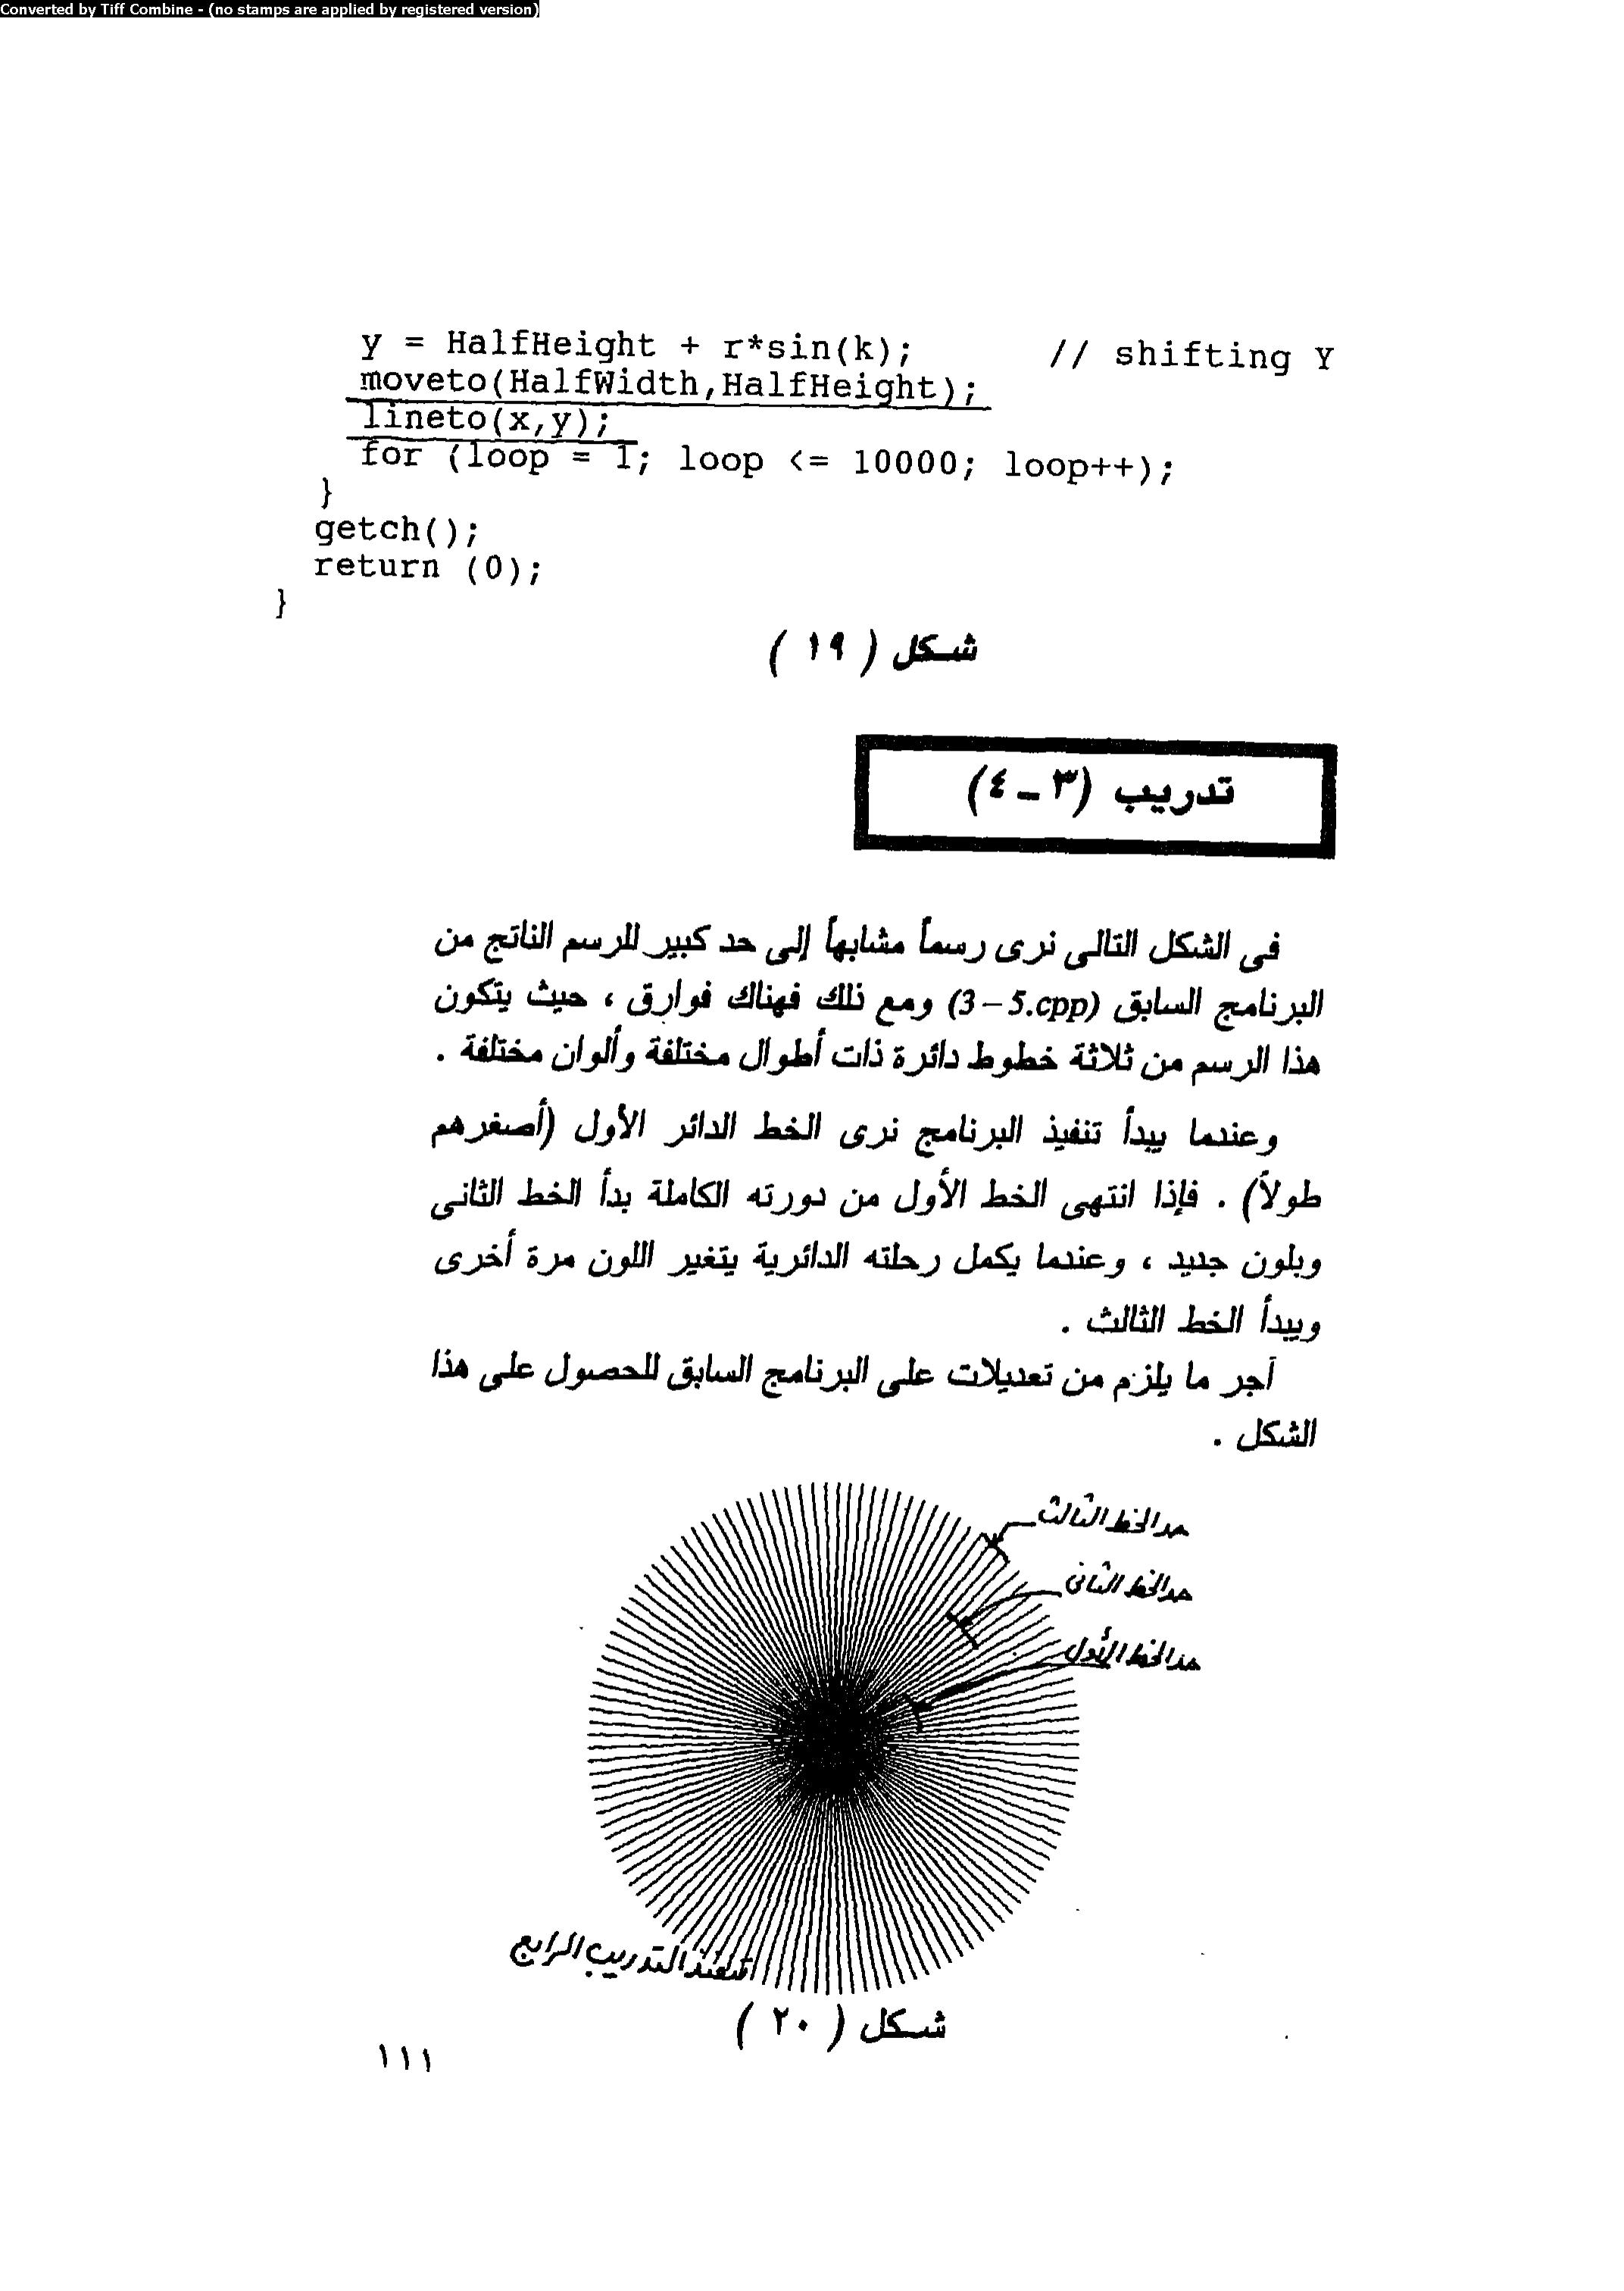 Converted by Tiff Combine - (no stamps are applied by registered version)
y = HalfHeight + r*sin(k); // shifting Y
moveto(HalfWidth,HalfHeight);
lineto(x,y);
for (loop = 1; loop <= 10000; loop++);
}
getch();
return (0);
}
شكل ( ١٩ )
تدريب (٣ – ٤)
فى الشكل التالى نرى رسماً مشابهاً إلى حد كبير للرسم الناتج من
البرنامج السابق (3–5.cpp) ومع ذلك فهناك فوارق ، حيث يتكون
هذا الرسم من ثلاثة خطوط دائرة ذات أطوال مختلفة وألوان مختلفة .
وعندما يبدأ تنفيذ البرنامج نرى الخط الدائر الأول (أصغرهم
طولاً) . فإذا انتهى الخط الأول من دورته الكاملة بدأ الخط الثانى
وبلون جديد ، وعندما يكمل رحلته الدائرية يتغير اللون مرة أخرى
ويبدأ الخط الثالث .
أجر ما يلزم من تعديلات على البرنامج السابق للحصول على هذا
الشكل .
حد الخط الثالث
حد الخط الثانى
حد الخط الأول
تنفيذ التدريب الرابع
شكل ( ٢٠ )
١١١